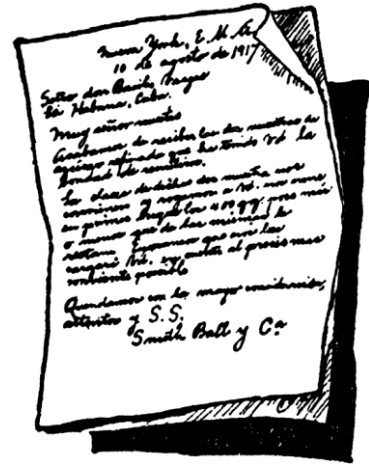 Nueva York, E. U. A.
10 de agosto de 1917
Señor don Basilio Vargas
La Habana, Cuba.
Muy señor nuestro
Acabamos de recibir las dos muestras de
azúcar refinado que ha tenido Vd. la
bondad de remitirnos.
La clase de dicha dos muestra nos
conviene y rogamos a Vd. nos
en primer lugar los 400 qq.
o menos que de las mismas le
restan. Esperamos que nos las
cargará Vd. en cuenta al precio mas
conveniente posible
Quedamos con la mayor consideración,
attentos y S. S.
Smith Ball y Cª